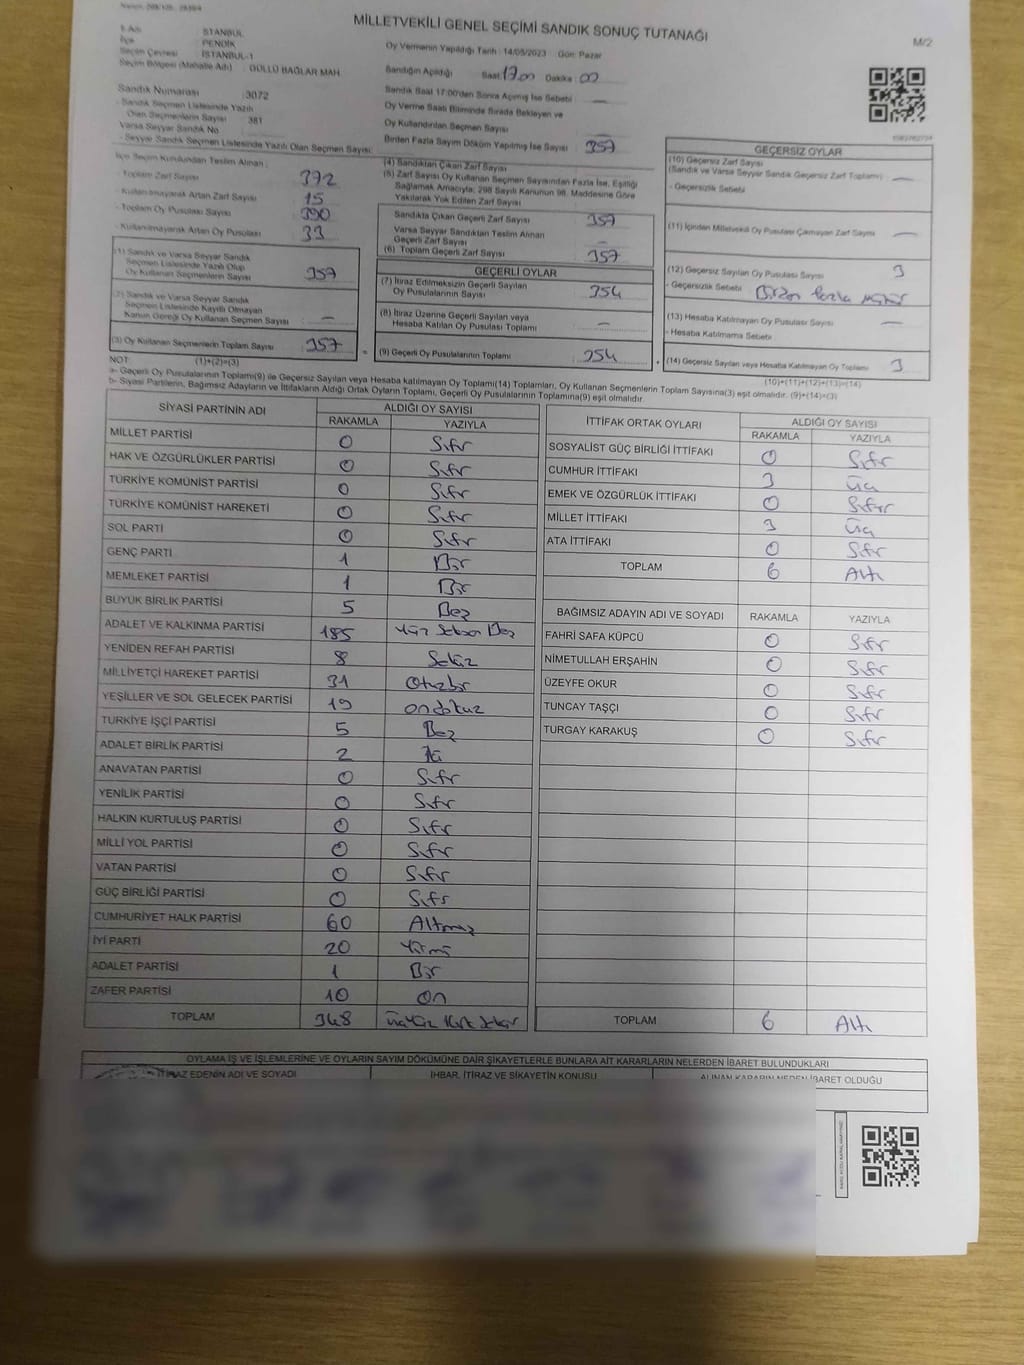 MİLLETVEKİLİ GENEL SEÇİMİ SANDIK SONUÇ TUTANAĞI
M/2
İli Adı : İSTANBUL
İlçe : PENDİK
Seçim Çevresi : İSTANBUL-1
Seçim Bölgesi (Mahalle Adı) : GÜLLÜ BAĞLAR MAH.
Oy Vermenin Yapıldığı Tarih : 14/05/2023 Gün: Pazar
Sandığın Açıldığı Saat: 17.00 Dakika: 00
Sandık Saat 17:00'den Sonra Açılmış İse Sebebi : —
Oy Verme Saati Bitiminde Sırada Bekleyen ve
Oy Kullandırılan Seçmen Sayısı
Birden Fazla Sayım Döküm Yapılmış İse Sayısı : 357
Sandık Numarası : 3072
- Sandık Seçmen Listesinde Yazılı
Olan Seçmenlerin Sayısı : 381
Varsa Seyyar Sandık No
- Seyyar Sandık Seçmen Listesinde Yazılı Olan Seçmen Sayısı:
İlçe Seçim Kurulundan Teslim Alınan :
- Toplam Zarf Sayısı 372
- Kullanılmayarak Artan Zarf Sayısı 15
- Toplam Oy Pusulası Sayısı 390
- Kullanılmayarak Artan Oy Pusulası 33
(1) Sandık ve Varsa Seyyar Sandık
Seçmen Listesinde Yazılı Olup
Oy Kullanan Seçmenlerin Sayısı 357
(2) Sandık ve Varsa Seyyar Sandık
Seçmen Listesinde Kayıtlı Olmayan
Kanun Gereği Oy Kullanan Seçmen Sayısı —
(3) Oy Kullanan Seçmenlerin Toplam Sayısı 357
(4) Sandıktan Çıkan Zarf Sayısı
(5) Zarf Sayısı Oy Kullanan Seçmen Sayısından Fazla İse, Eşitliği
Sağlamak Amacıyla; 298 Sayılı Kanunun 98. Maddesine Göre
Yakılarak Yok Edilen Zarf Sayısı
Sandıkta Çıkan Geçerli Zarf Sayısı 357
Varsa Seyyar Sandıktan Teslim Alınan
Geçerli Zarf Sayısı —
(6) Toplam Geçerli Zarf Sayısı 357
GEÇERLİ OYLAR
(7) İtiraz Edilmeksizin Geçerli Sayılan
Oy Pusulalarının Sayısı 354
(8) İtiraz Üzerine Geçerli Sayılan veya
Hesaba Katılan Oy Pusulası Toplamı —
(9) Geçerli Oy Pusulalarının Toplamı : 354
GEÇERSİZ OYLAR
(10) Geçersiz Zarf Sayısı
(Sandık ve Varsa Seyyar Sandık Geçersiz Zarf Toplamı) —
- Geçersizlik Sebebi
(11) İçinden Milletvekili Oy Pusulası Çıkmayan Zarf Sayısı —
(12) Geçersiz Sayılan Oy Pusulası Sayısı 3
- Geçersizlik Sebebi Birden fazla mühür
(13) Hesaba Katılmayan Oy Pusulası Sayısı —
- Hesaba Katılmama Sebebi
(14) Geçersiz Sayılan veya Hesaba Katılmayan Oy Toplamı 3
NOT: (1)+(2)=(3)
(10)+(11)+(12)+(13)=(14)
a- Geçerli Oy Pusulalarının Toplamı(9) ile Geçersiz Sayılan veya Hesaba katılmayan Oy Toplamı(14) Toplamları, Oy Kullanan Seçmenlerin Toplam Sayısına(3) eşit olmalıdır. (9)+(14)=(3)
b- Siyasi Partilerin, Bağımsız Adayların ve İttifakların Aldığı Ortak Oyların Toplamı, Geçerli Oy Pusulalarının Toplamına(9) eşit olmalıdır.
SİYASİ PARTİNİN ADI ALDIĞI OY SAYISI
RAKAMLA YAZIYLA
MİLLET PARTİSİ 0 Sıfır
HAK VE ÖZGÜRLÜKLER PARTİSİ 0 Sıfır
TÜRKİYE KOMÜNİST PARTİSİ 0 Sıfır
TÜRKİYE KOMÜNİST HAREKETİ 0 Sıfır
SOL PARTİ 0 Sıfır
GENÇ PARTİ 1 Bir
MEMLEKET PARTİSİ 1 Bir
BÜYÜK BİRLİK PARTİSİ 5 Beş
ADALET VE KALKINMA PARTİSİ 185 Yüz Seksen Beş
YENİDEN REFAH PARTİSİ 8 Sekiz
MİLLİYETÇİ HAREKET PARTİSİ 31 Otuzbir
YEŞİLLER VE SOL GELECEK PARTİSİ 19 ondokuz
TÜRKİYE İŞÇİ PARTİSİ 5 Beş
ADALET BİRLİK PARTİSİ 2 İki
ANAVATAN PARTİSİ 0 Sıfır
YENİLİK PARTİSİ 0 Sıfır
HALKIN KURTULUŞ PARTİSİ 0 Sıfır
MİLLİ YOL PARTİSİ 0 Sıfır
VATAN PARTİSİ 0 Sıfır
GÜÇ BİRLİĞİ PARTİSİ 0 Sıfır
CUMHURİYET HALK PARTİSİ 60 Altmış
İYİ PARTİ 20 Yirmi
ADALET PARTİSİ 1 Bir
ZAFER PARTİSİ 10 On
TOPLAM 348 Üçyüz Kırk Sekiz
İTTİFAK ORTAK OYLARI ALDIĞI OY SAYISI
RAKAMLA YAZIYLA
SOSYALİST GÜÇ BİRLİĞİ İTTİFAKI 0 Sıfır
CUMHUR İTTİFAKI 3 Üç
EMEK VE ÖZGÜRLÜK İTTİFAKI 0 Sıfır
MİLLET İTTİFAKI 3 Üç
ATA İTTİFAKI 0 Sıfır
TOPLAM 6 Altı
BAĞIMSIZ ADAYIN ADI VE SOYADI RAKAMLA YAZIYLA
FAHRİ SAFA KÜPCÜ 0 Sıfır
NİMETULLAH ERŞAHİN 0 Sıfır
ÜZEYFE OKUR 0 Sıfır
TUNCAY TAŞÇI 0 Sıfır
TURGAY KARAKUŞ 0 Sıfır
TOPLAM 6 Altı
OYLAMA İŞ VE İŞLEMLERİNE VE OYLARIN SAYIM DÖKÜMÜNE DAİR ŞİKAYETLERLE BUNLARA AİT KARARLARIN NELERDEN İBARET BULUNDUKLARI
İTİRAZ EDENİN ADI VE SOYADI İHBAR, İTİRAZ VE ŞİKAYETİN KONUSU ALINAN KARARIN NEDEN İBARET OLDUĞU